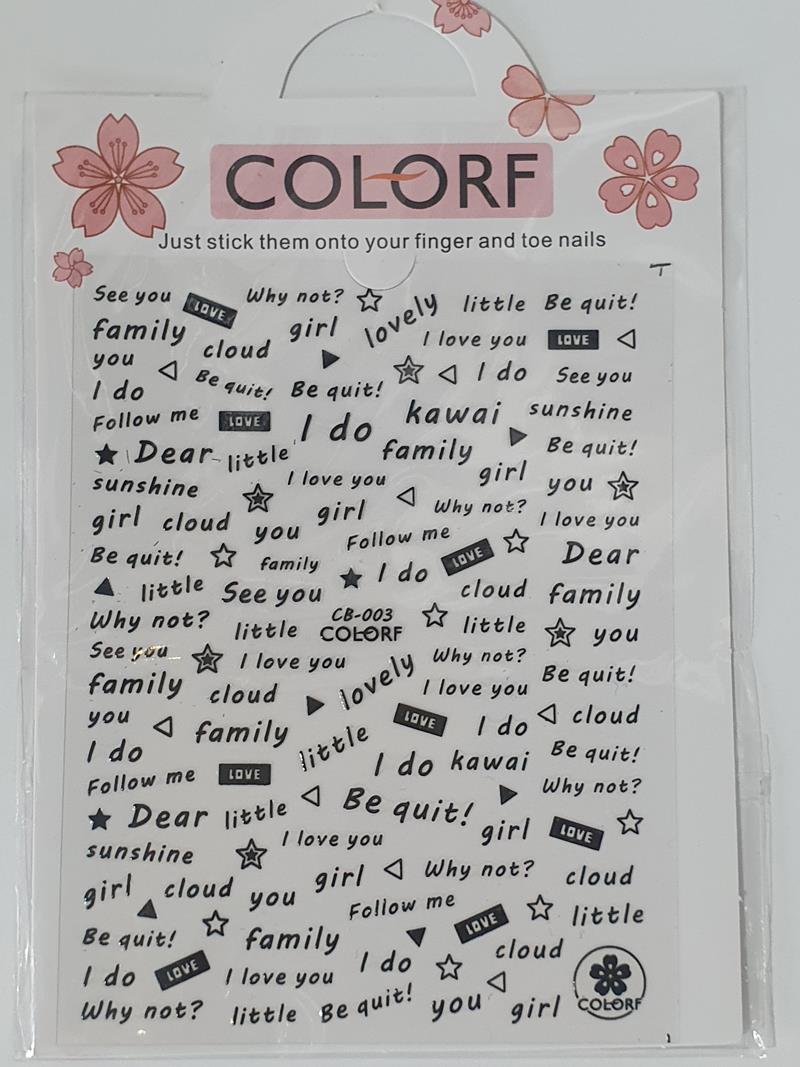 COLORF
Just stick them onto your finger and toe nails
See you LOVE Why not? lovely little Be quit!
family girl I love you LOVE
you cloud
I do Be quit! Be quit! I do See you
Follow me LOVE I do kawai sunshine
Dear little family Be quit!
sunshine I love you girl you
girl cloud you girl Why not? I love you
Be quit! family Follow me LOVE Dear
little See you I do cloud family
Why not? little CB-003 little you
COLORF
See you I love you lovely Why not? Be quit!
family cloud I love you
you family LOVE I do cloud
I do little I do kawai Be quit!
Follow me LOVE Why not?
Dear little Be quit! girl LOVE
sunshine I love you
girl cloud you girl Why not? cloud
Follow me LOVE little
Be quit! family cloud
I do LOVE I love you I do
Why not? little Be quit! you girl COLORF